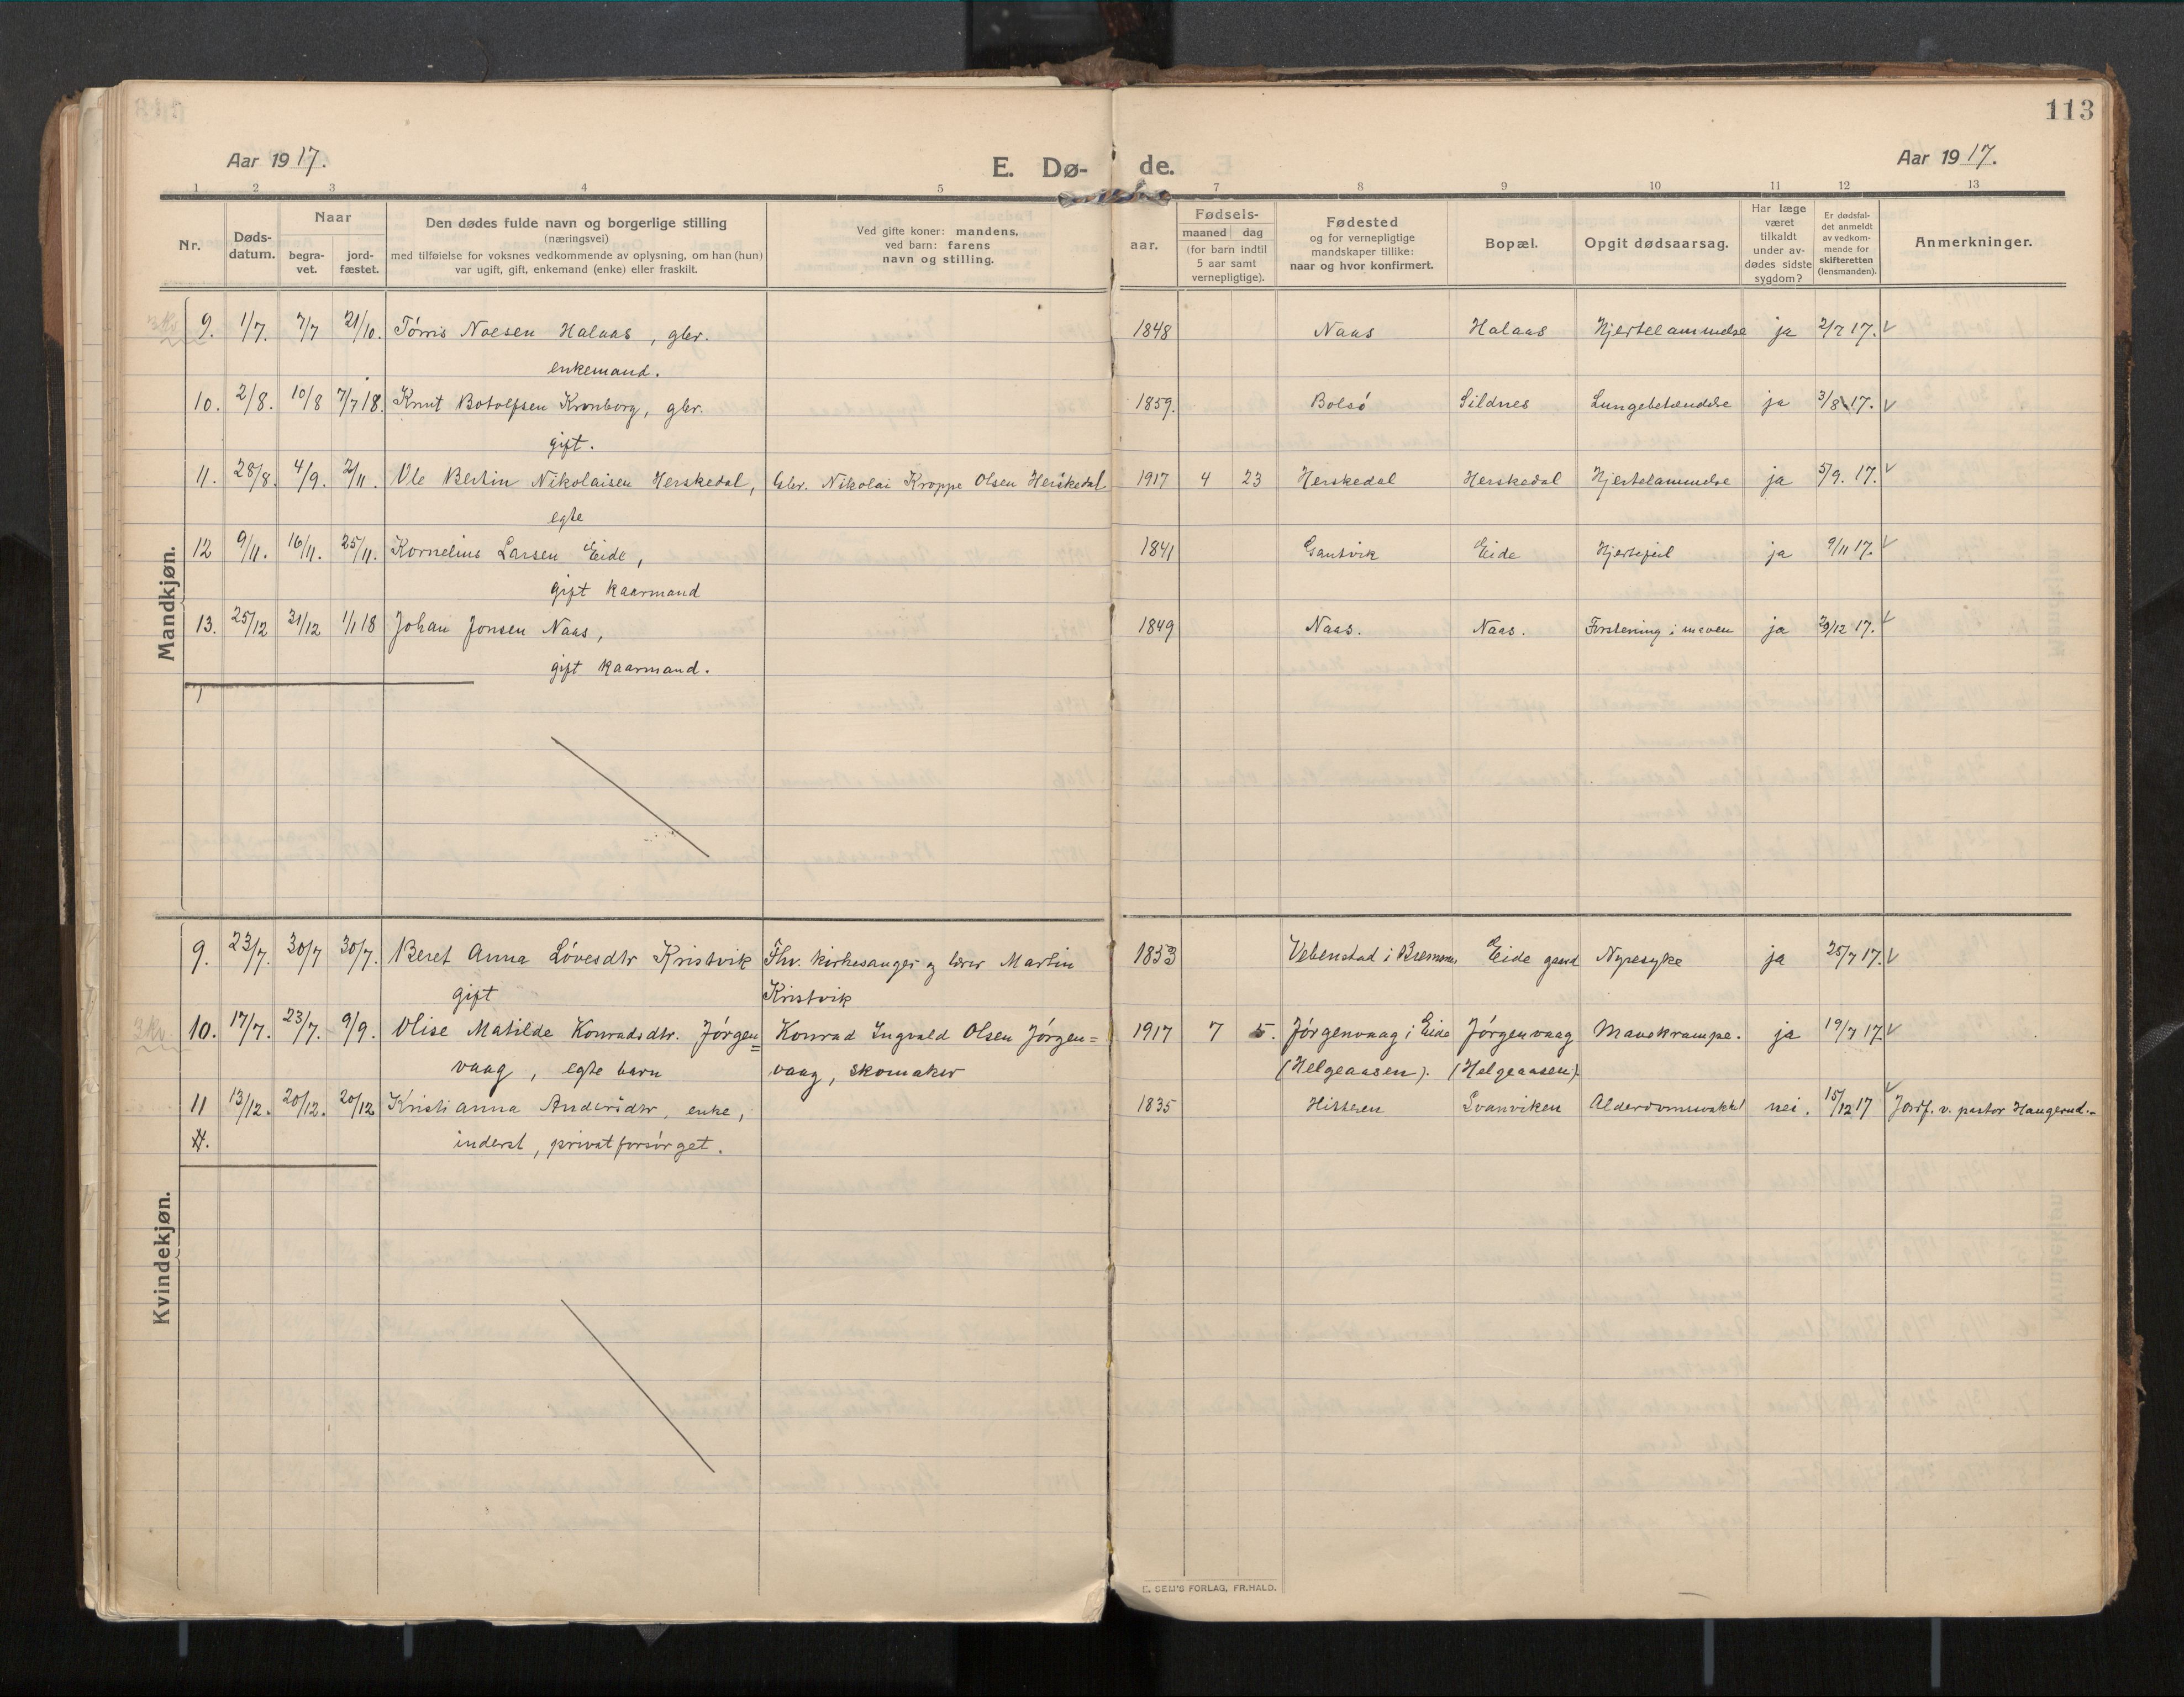 113
Aar 1917.
E. Dø-
de.
Aar 1917.
1 2 3 4 5 7 8 9 10 11 12 13
Nr.
Døds-
datum.
Naar
begra-
vet.
jord-
fæstet.
Den dødes fulde navn og borgerlige stilling
(næringsvei)
med tilføielse for voksnes vedkommende av oplysning, om han (hun)
var ugift, gift, enkemand (enke) eller fraskilt.
Ved gifte koner: mandens,
ved barn: farens
navn og stilling.
Fødsels-
aar.
maaned dag
(for barn indtil
5 aar samt
vernepligtige).
Fødested
og for vernepligtige
mandskaper tillike:
naar og hvor konfirmert.
Bopæl.
Opgit dødsaarsag.
Har læge
været
tilkaldt
under av-
dødes sidste
sygdom?
Er dødsfal-
det anmeldt
av vedkom-
mende for
skifteretten
(lensmanden).
Anmerkninger.
Mandkjøn.
9. 1/7. 7/7 21/10. Tørris Noesen Halaas, gbr. 1848 Naas Halaas Hjertelammelse ja 2/7 17. v
enkemand.
10. 2/8. 10/8 7/7 18. Knut Botolfsen Kronborg, gbr. 1859. Bolsø Sildnes Lungebetændelse ja 3/8 17. v
gift.
11. 28/8. 4/9. 2/11. Ole Bertin Nikolaisen Herskedal, Gbr. Nikolai Kroppe Olsen Herskedal 1917 4 23 Herskedal Herskedal Hjertelammelse ja 5/9. 17. v
egte
12 9/11. 16/11. 25/11. Kornelius Larsen Eide, 1841 Gautvik Eide Hjertefeil ja 9/11 17. v
gift kaarmand
13. 25/12 31/12 1/1 18 Johan Jonsen Naas, 1849 Naas. Naas. Forstening i maven ja 29/12 17. v
gift kaarmand.
Kvindekjøn.
9. 23/7. 30/7 30/7. Beret Anna Løvesdtr Kristvik Fhv. kirkesanger og lærer Martin 1833 Vebenstad i Bremsnes Eide gaard Nyresyke ja 25/7 17. v
gift Kristvik
3 Kv. 10. 17/7. 23/7. 9/9. Olise Matilde Konradsdtr. Jørgen= Konrad Ingvald Olsen Jørgen= 1917 7 5. Jørgenvaag i Eide Jørgenvaag Mavekrampe. ja 19/7 17. v
vaag, egte barn vaag, skomaker (Helgeaasen). (Helgeaasen).
11 13/12. 20/12. 20/12 Kristianna Andersdtr, enke, 1835 Hitteren Svanviken Alderdomssvakhet nei. 15/12 17 v Jordf. v. pastor Haugerud.
inderst, privat forsørget.
E. SEM'S FORLAG, FR.HALD.